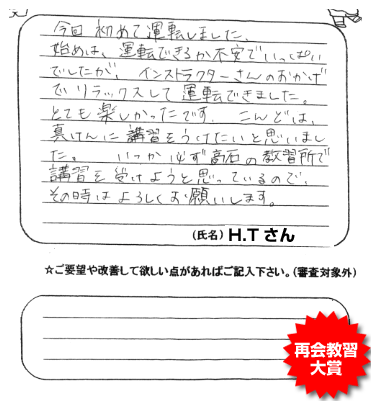 今回 初めて運転しました。
始めは、運転できるか不安でいっぱい
でしたが、インストラクターさんのおかげ
でリラックスして運転できました。
とても楽しかったです。こんどは、
真けんに講習をうけたいと思いまし
た。 いつか必ず高石の教習所で
講習を受けようと思っているので、
その時はよろしくお願いします。
(氏名) H.Tさん
☆ご要望や改善して欲しい点があればご記入下さい。(審査対象外)
再会教習
大賞